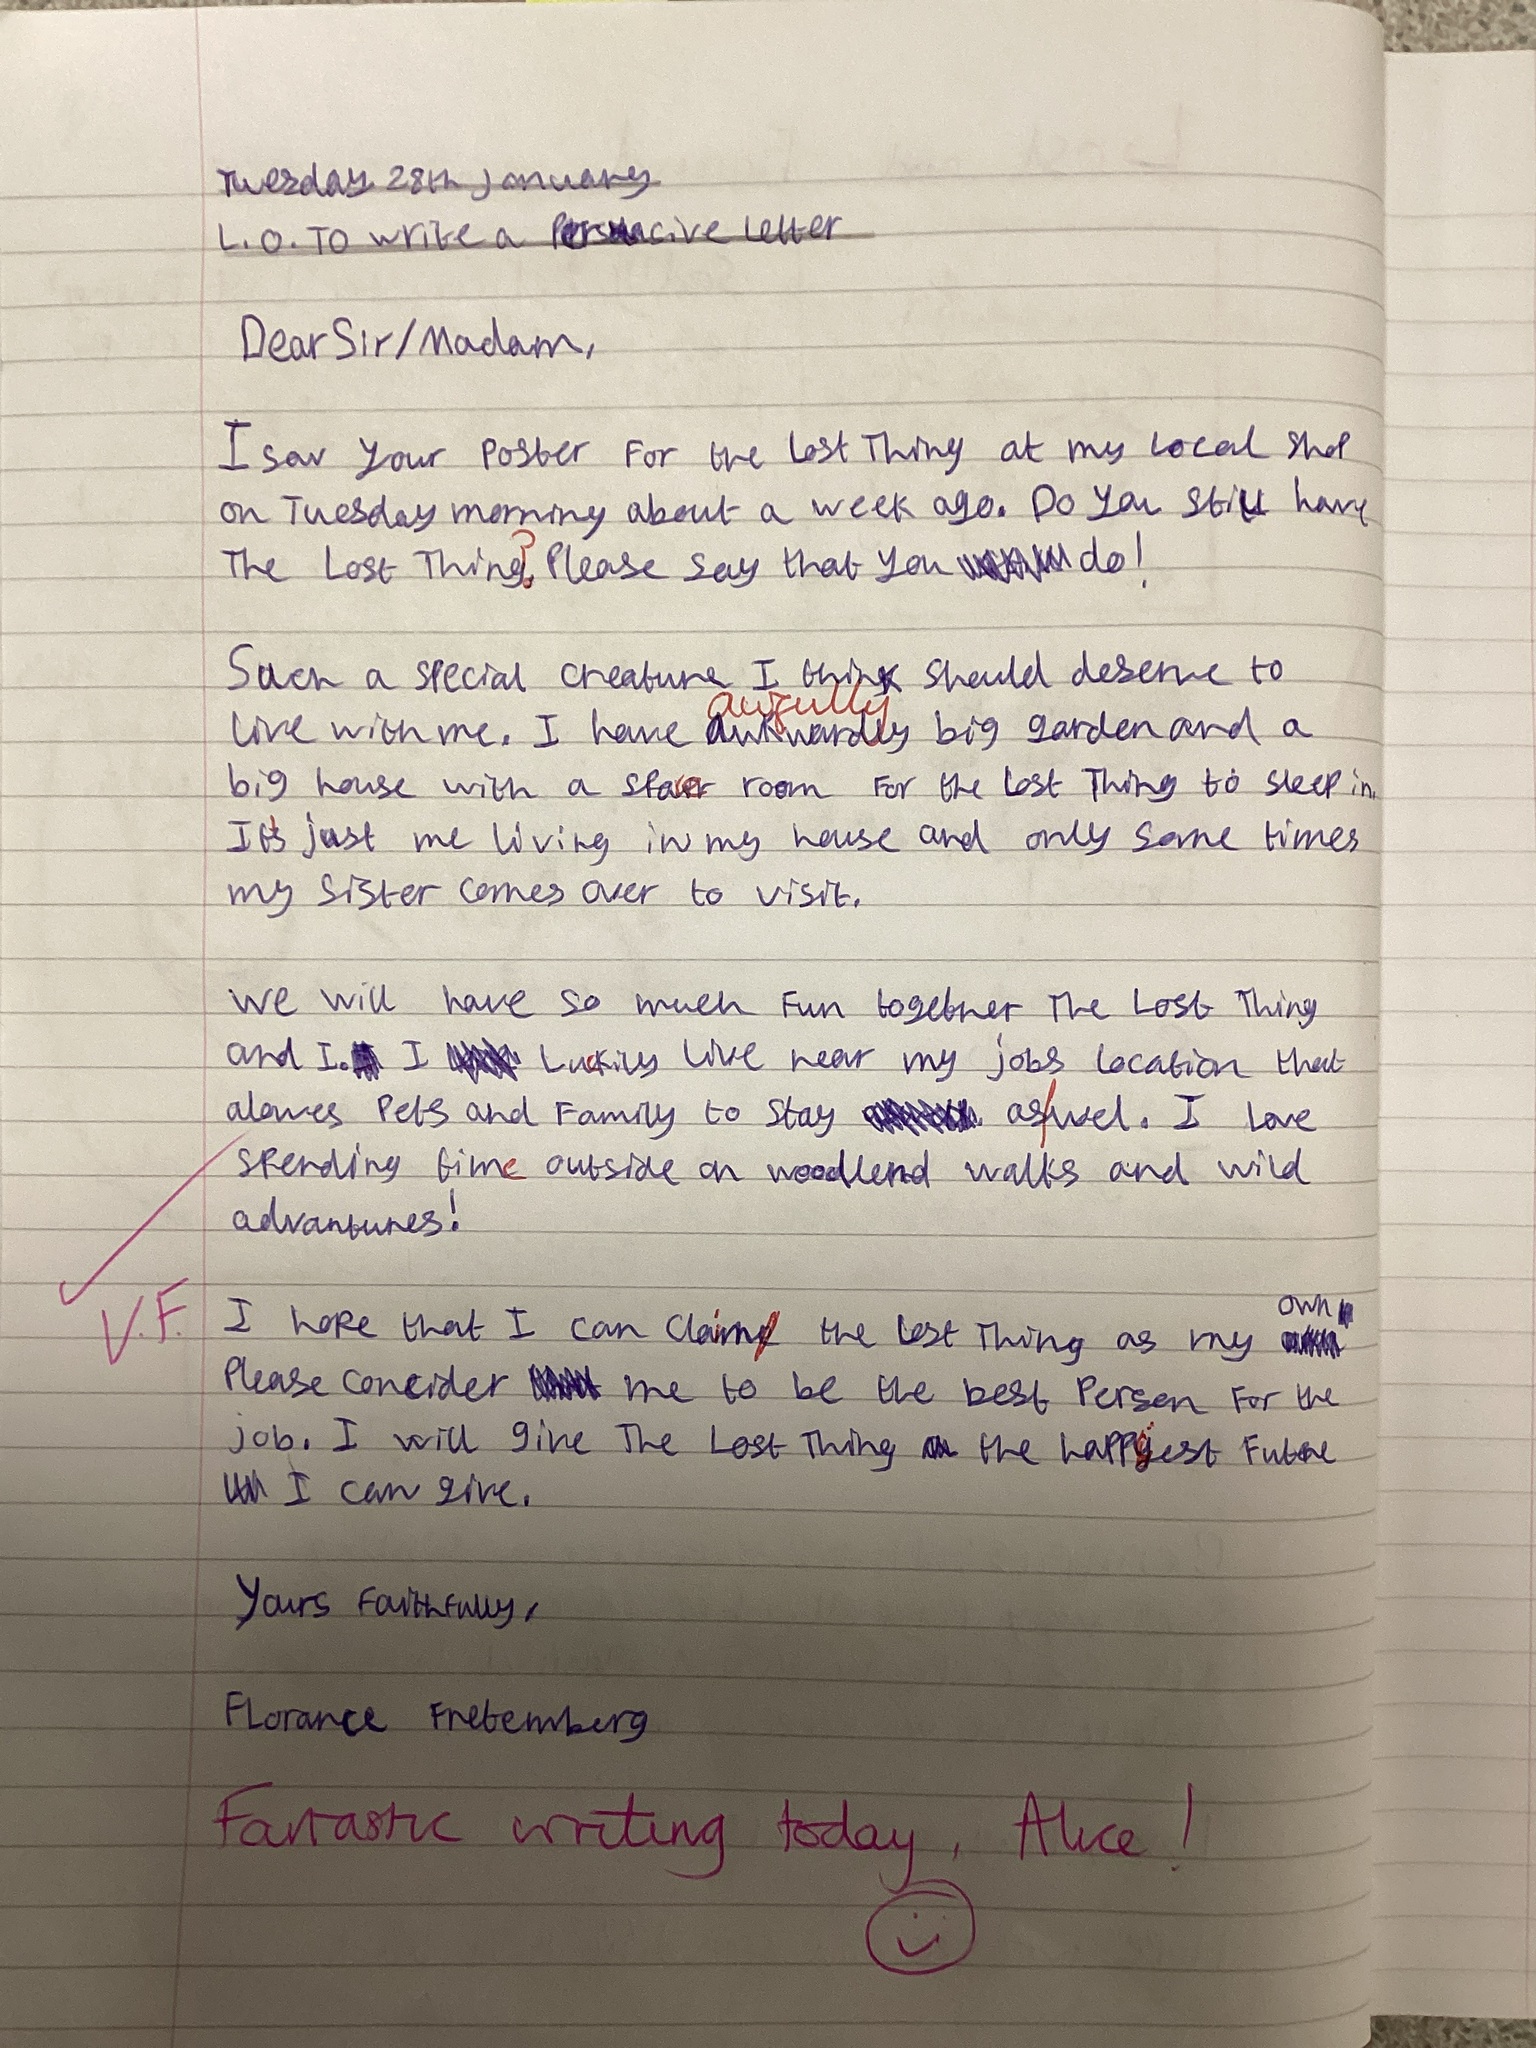 Tuesday 28th January
L.O. To write a Persuacive Letter
Dear Sir/Madam,
I saw your Poster For the Lost Thing at my local shop
on Tuesday morning about a week ago. Do you still have
The Lost Thing? Please say that you do!
Such a special creature I think should deserve to
awfully
live with me. I have awkwardly big garden and a
big house with a spare room For the Lost Thing to sleep in.
It's just me living in my house and only some times
my sister comes over to visit.
We will have so much Fun together The Lost Thing
and I. I Luckily live near my jobs location that
alowes Pets and Family to stay as/wel. I love
spending time outside on woodlend walks and wild
advantures!
V.F.
own
I hope that I can claim the Lost Thing as my
Please concider me to be the best Person For the
job. I will give The Lost Thing the happiest Future
I can give.
Yours Faithfully,
Florance Fretemberg
Fantastic writing today, Alice!